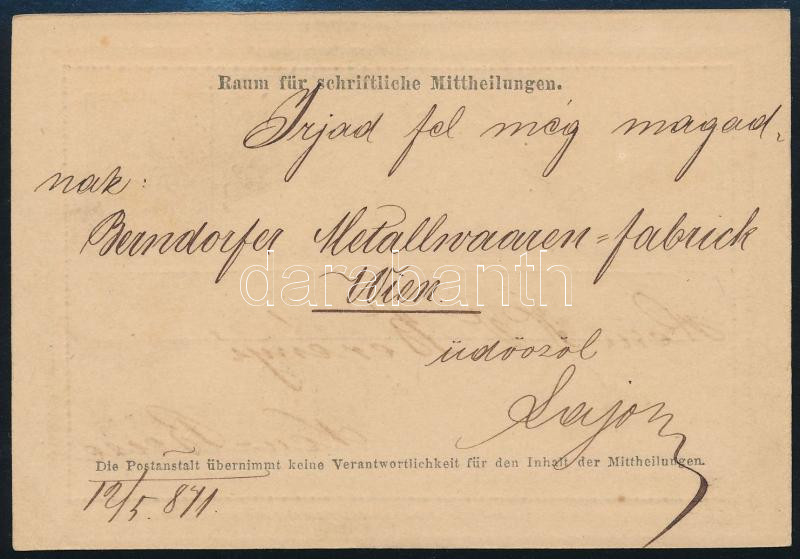 Raum für schriftliche Mittheilungen.
Irjad fel még magad-
nak:
Berndorfer Metallwaaren=fabrick
darabanth
Wien.
üdőözöl
Lajos
Die Postanstalt übernimmt keine Verantwortlichkeit für den Inhalt der Mittheilungen.
12/5. 871.